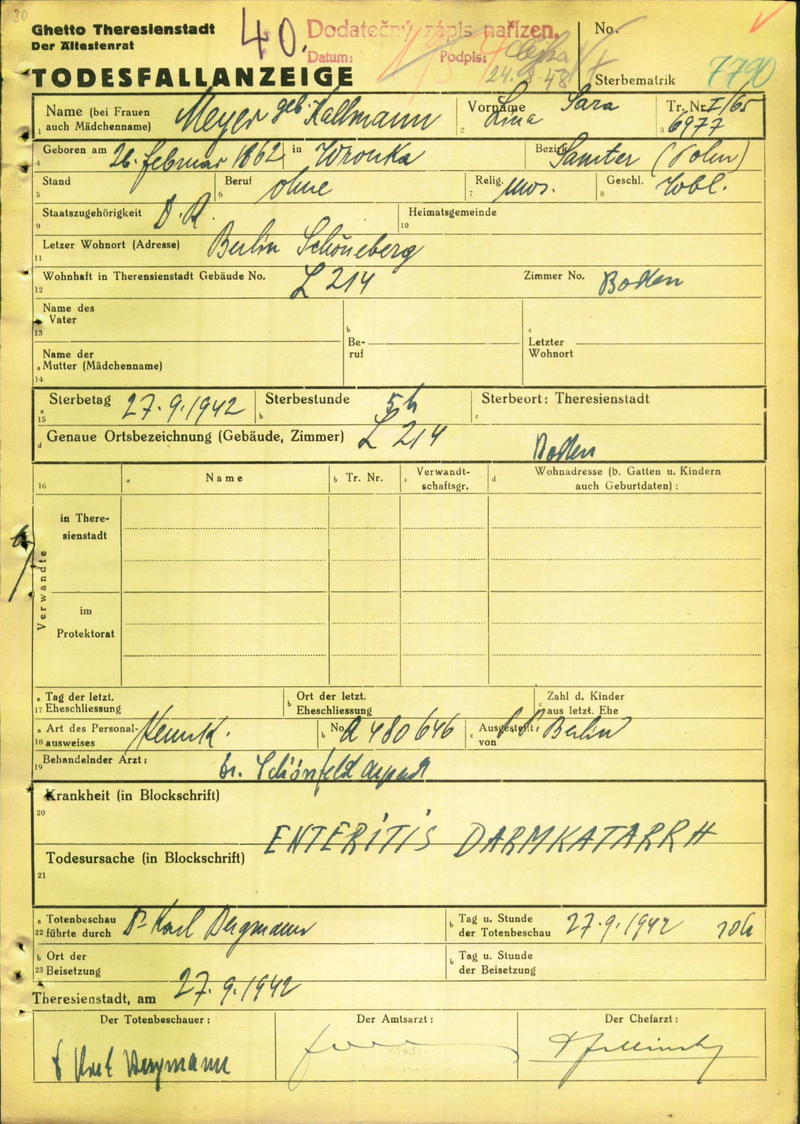 30
Ghetto Theresienstadt
Der Ältestenrat
TODESFALLANZEIGE
40.
Dodatečný zápis nařízen.
Datum: Podpis:
24. 48
No.
Sterbematrik 7790
Name (bei Frauen auch Mädchenname) Meyer geb. Kallmann
1
Vorname Lina Sara
2
Tr. Nr. I/65
3 6977
Geboren am 26. Februar 1862 in Wronka Bezirk Samter (Polen)
4
Stand Beruf ohne Relig. mos. Geschl. wbl.
5 6 7 8
Staatszugehörigkeit D.R. Heimatsgemeinde
9 10
Letzer Wohnort (Adresse) Berlin Schöneberg
11
Wohnhaft in Theresienstadt Gebäude No. L 214 Zimmer No. Boden
12
Name des Vater
13
b Beruf
c Letzter Wohnort
Name der
a Mutter (Mädchenname)
14
a Sterbetag 27.9.1942 b Sterbestunde 5h c Sterbeort: Theresienstadt
15
d Genaue Ortsbezeichnung (Gebäude, Zimmer) L 214 Boden
16 a Name b Tr. Nr. c Verwandtschaftsgr. d Wohnadresse (b. Gatten u. Kindern auch Geburtdaten) :
Verwandte
in Theresienstadt
im Protektorat
a Tag der letzt. b Ort der letzt. c Zahl d. Kinder
17 Eheschliessung Eheschliessung aus letzt. Ehe
a Art des Personal- Kennk. b No. A 480646 c Ausgestellt: P.P. Berlin
18 ausweises von
Behandelnder Arzt: Dr. Schönfeld
19
Krankheit (in Blockschrift)
20
ENTERITIS DARMKATARRH
Todesursache (in Blockschrift)
21
a Totenbeschau Dr Karl Bergmann b Tag u. Stunde 27.9.1942 10h
22 führte durch der Totenbeschau
b Ort der b Tag u. Stunde
23 Beisetzung der Beisetzung
Theresienstadt, am 27.9.1942
Der Totenbeschauer: Der Amtsarzt: Der Chefarzt:
Dr Karl Bergmann